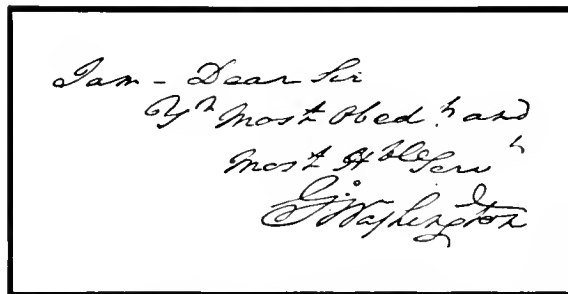 I am - Dear Sir
Yr. Most Obed.t and
Most Hble Servt
Go. Washington